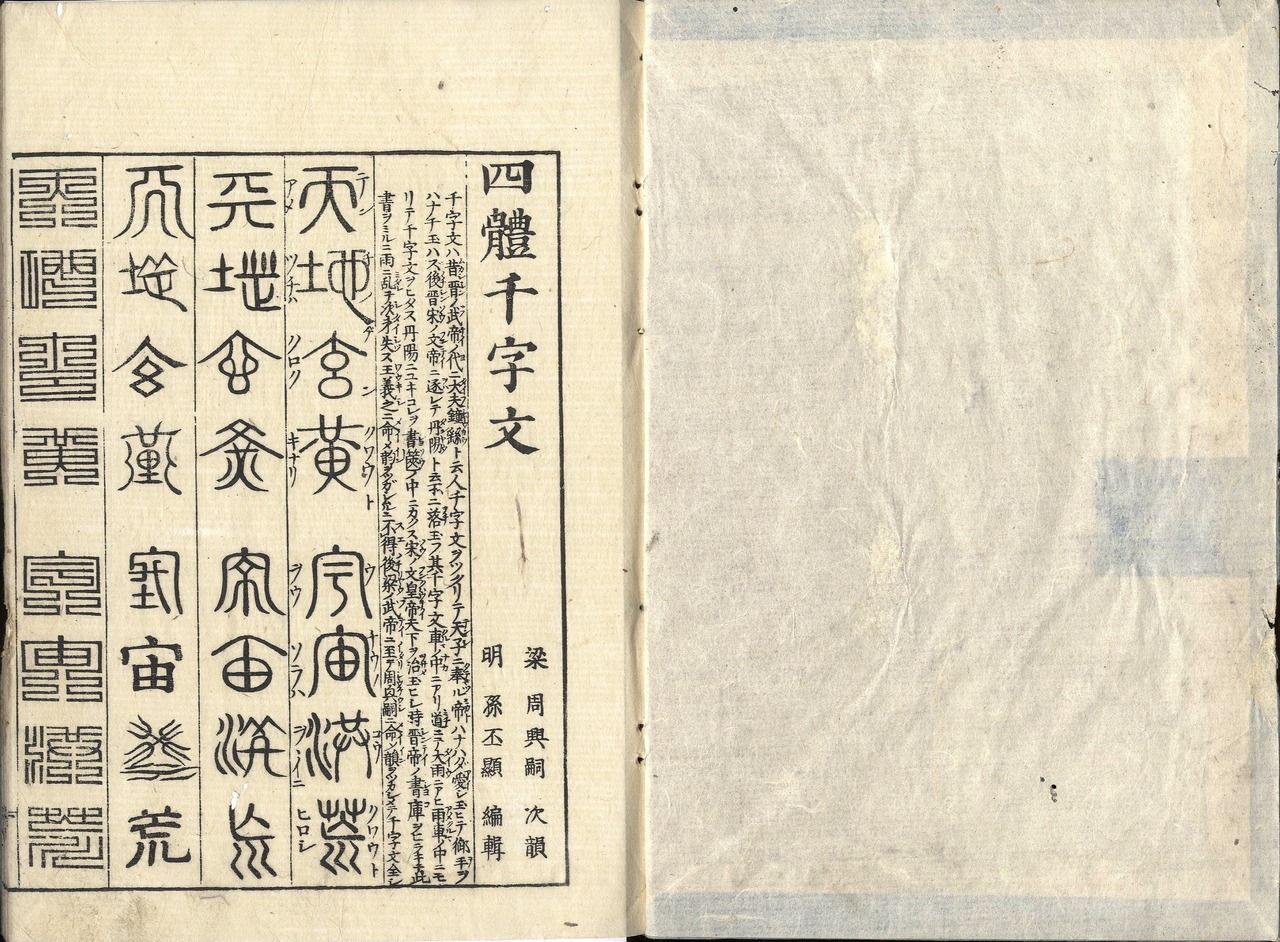 四體千字文
梁 周興嗣 次韻
明 孫丕顯 編輯
千字文ハ昔晋ノ武帝ノ代ニ大夫鍾繇ト云人千字文ヲツクリテ天子ニ奉ル帝ハナハダ愛シ玉ヒテ御手ヲ
ハナチ玉ハス後晋宋ノ文帝ニ逐レテ丹陽ト云ニ落玉フ其千字文車ノ中ニアリ道ニテ大雨ニアヒ雨車ノ中ニモ
リテ千字文ヲヒタス丹陽ニユキコレヲ書篋ノ中ニカクス宋ノ文皇帝天下ヲ治玉ヒシ時晋帝ノ書庫ヲヒラキ此
書ヲミルニ雨ニ乱テ次才失ス王羲之ニ命メ韵ヲツガシムルニ不得後梁ノ武帝ニ至テ周興嗣ニ命シ韻ヲツカシメテ千字文全シ
天地玄黄 宇宙洪荒
テン チノ ゲン クワウト ウ チウノ コウ クワウト
アメ ツチハ クロク キナリ ヲウ ソラハ ヲヽイニ ヒロシ
天地玄黄 宇宙洪荒
天地玄黄 宇宙洪荒
天地玄黄 宇宙洪荒